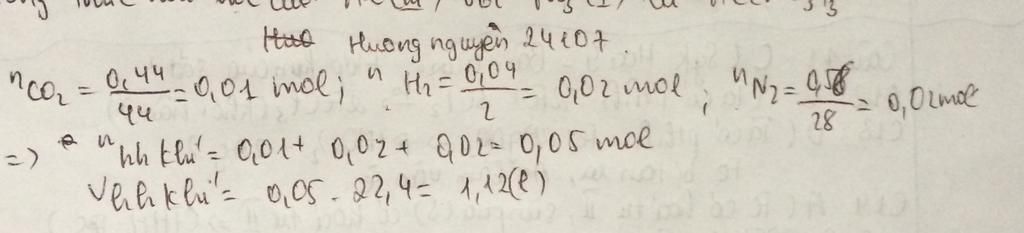 Huong nguyễn 24107.
nCO₂ = 0,44/44 = 0,01 mol; nH₂ = 0,04/2 = 0,02 mol; nN₂ = 0,56/28 = 0,02 mol
=> nhh khí = 0,01 + 0,02 + 0,02 = 0,05 mol
Vhh khí = 0,05 . 22,4 = 1,12(l)